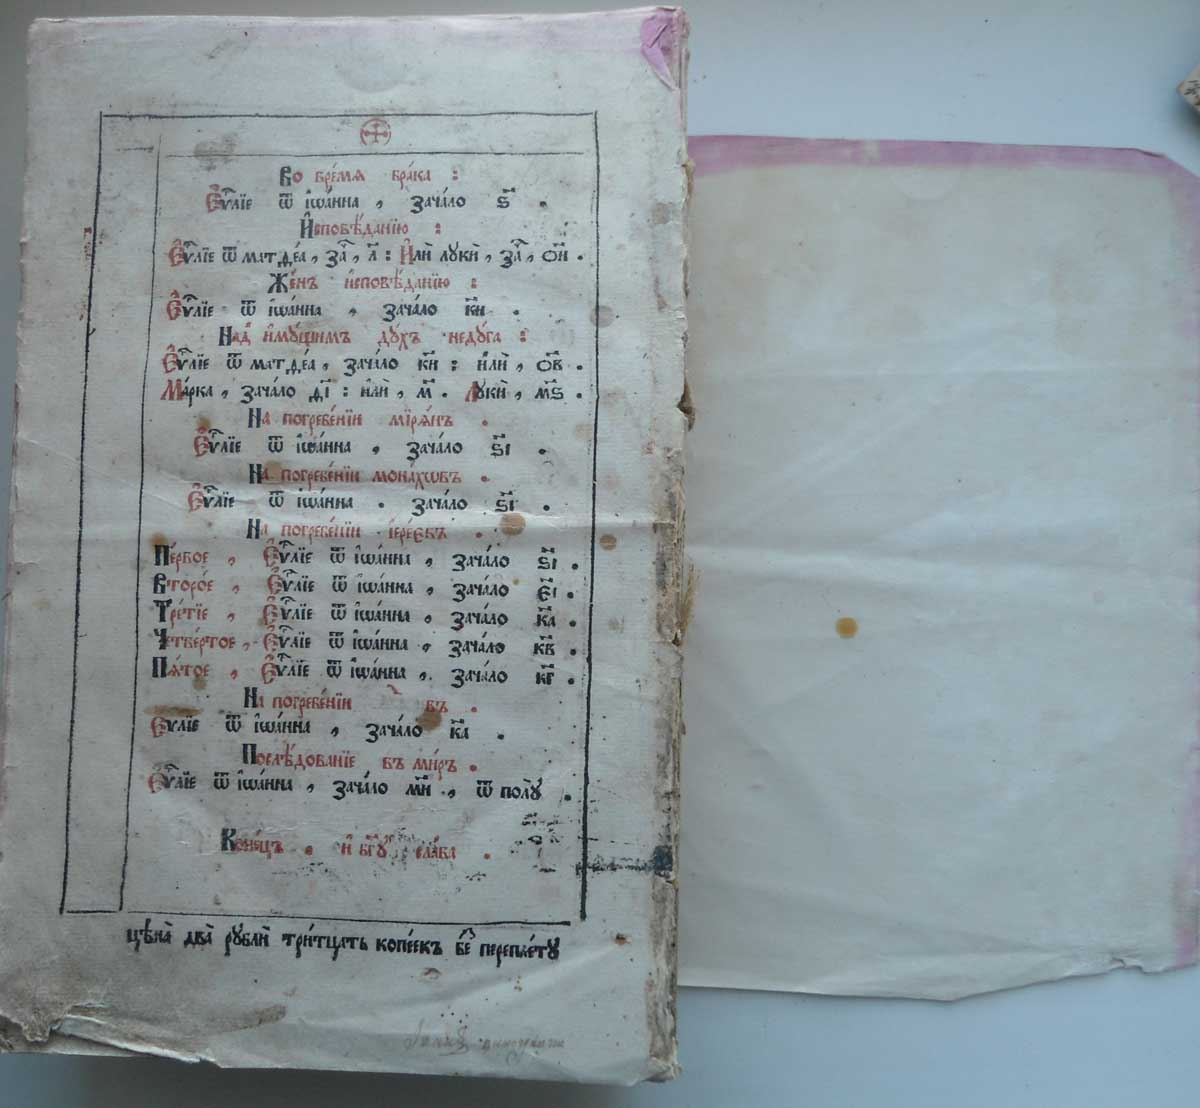 Во вре́мѧ бра́ка :
Є҆ѵⷢ҇лїе ѿ і҆ѡа́нна , зача́ло ѕ҃ .
И҆сповѣ́данїю :
Є҆ѵⷢ҇лїе ѿ матѳе́а , заⷱ҇ , л҃ : И҆лѝ лꙋкѝ , заⷱ҇ , ѻ҃и .
Же́нъ и҆сповѣ́данїю :
Є҆ѵⷢ҇лїе ѿ і҆ѡа́нна , зача́ло к҃и .
Над̾ и҆мꙋ́щимъ дꙋ́хъ недꙋ́га :
Є҆ѵⷢ҇лїе ѿ матѳе́а , зача́ло к҃и : и҆лѝ , ѻ҃в .
Ма́рка , зача́ло д҃і : и҆лѝ , м҃ . Лꙋкѝ , м҃ѕ .
На погребе́нїи мїрѧ́нъ .
Є҆ѵⷢ҇лїе ѿ і҆ѡа́нна , зача́ло ѕ҃і .
На погребе́нїи мона́хѡвъ .
Є҆ѵⷢ҇лїе ѿ і҆ѡа́нна . зача́ло ѕ҃і .
На погребе́нїи і҆ере́євъ .
Пе́рвое , Є҆ѵⷢ҇лїе ѿ і҆ѡа́нна , зача́ло ѕ҃і .
Второ́е , Є҆ѵⷢ҇лїе ѿ і҆ѡа́нна , зача́ло є҃і .
Тре́тїе , Є҆ѵⷢ҇лїе ѿ і҆ѡа́нна , зача́ло к҃а .
Четве́ртое , Є҆ѵⷢ҇лїе ѿ і҆ѡа́нна , зача́ло к҃в .
Пѧ́тое , Є҆ѵⷢ҇лїе ѿ і҆ѡа́нна , зача́ло к҃г .
На погребе́нїи въ .
Є҆ѵⷢ҇лїе ѿ і҆ѡа́нна , зача́ло к҃а .
Послѣ́дованїе въ ми́ръ .
Є҆ѵⷢ҇лїе ѿ і҆ѡа́нна , зача́ло м҃и , ѿ полꙋ̀ .
Коне́цъ , и҆ бг҃ꙋ сла́ва .
цѣна̀ два̀ рꙋблѝ три́тцать копе́екъ беⷥ переплетꙋ